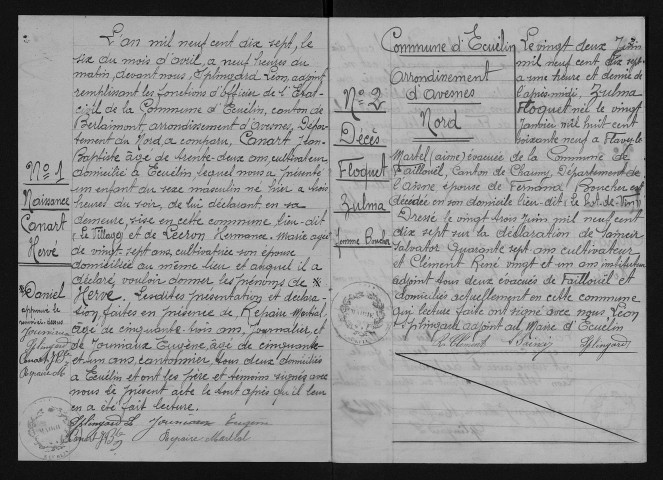 N° 1
Naissance
Canart
Hervé
Daniel
L'an mil neuf cent dix sept, le
six du mois d'avril, a neuf heures du
matin, devant nous, Splingard Léon, adjoint
remplissant les fonctions d'Officier de l'Etat-
civil de la Commune d'Ecuélin, canton de
Berlaimont, arrondissement d'Avesnes, Dépar-
tement du Nord, a comparu, Canart Jean-
Baptiste âgé de trente-deux ans, cultivateur
domicilié à Ecuélin lequel nous a présenté
un enfant du sexe masculin né hier a trois
heures du soir, de lui déclarant, en sa
demeure, sise en cette commune lieu-dit
(Le Village) et de Lecron Hermance Marie agée
de vingt-sept ans, cultivatrice son épouse
domiciliée au même lieu et auquel il a
déclaré vouloir donner les prénoms de
Hervé. Lesdites présentation et déclara-
tion faites en présence de Repaire Martial
âgé de cinquante-trois ans, journalier, et
de Jouniaux Eugène, agé de cinquante-
et un ans, cantonnier tous deux domiciliés
a Ecuélin et ont les père et témoins signés avec
nous le présent acte le tout après qu'il leur
en a été fait lecture.
Splingard L Jouniaux Eugène
Canart J Bte Repaire Martial
Commune d'Ecuélin
Arrondissement
d'Avesnes
Nord
N° 2
Décès
Floquet
Zulma
femme Boucher
Le vingt deux Juin
mil neuf cent dix sept
a une heure et demie de
l'après-midi, Zulma
Floquet née le vingt
Janvier mil huit cent
soixante neuf a Flavy-le-
Martel (aisne) évacuée de la Commune de
Faillouël, Canton de Chauny, Département de
l'aisne épouse de Fernand Boucher est
décédée en son domicile lieu-dit: le
Dressé le vingt trois Juin mil neuf cent
dix sept sur la déclaration de
Salvator Quarante sept ans cultivateur
et Clément René vingt et un ans instituteur
adjoint tous deux évacués de Faillouël et
domiciliés actuellement en cette commune
qui lecture faite ont signé avec nous Léon
Splingard adjoint au Maire d'Ecuélin
R. Clément Splingard